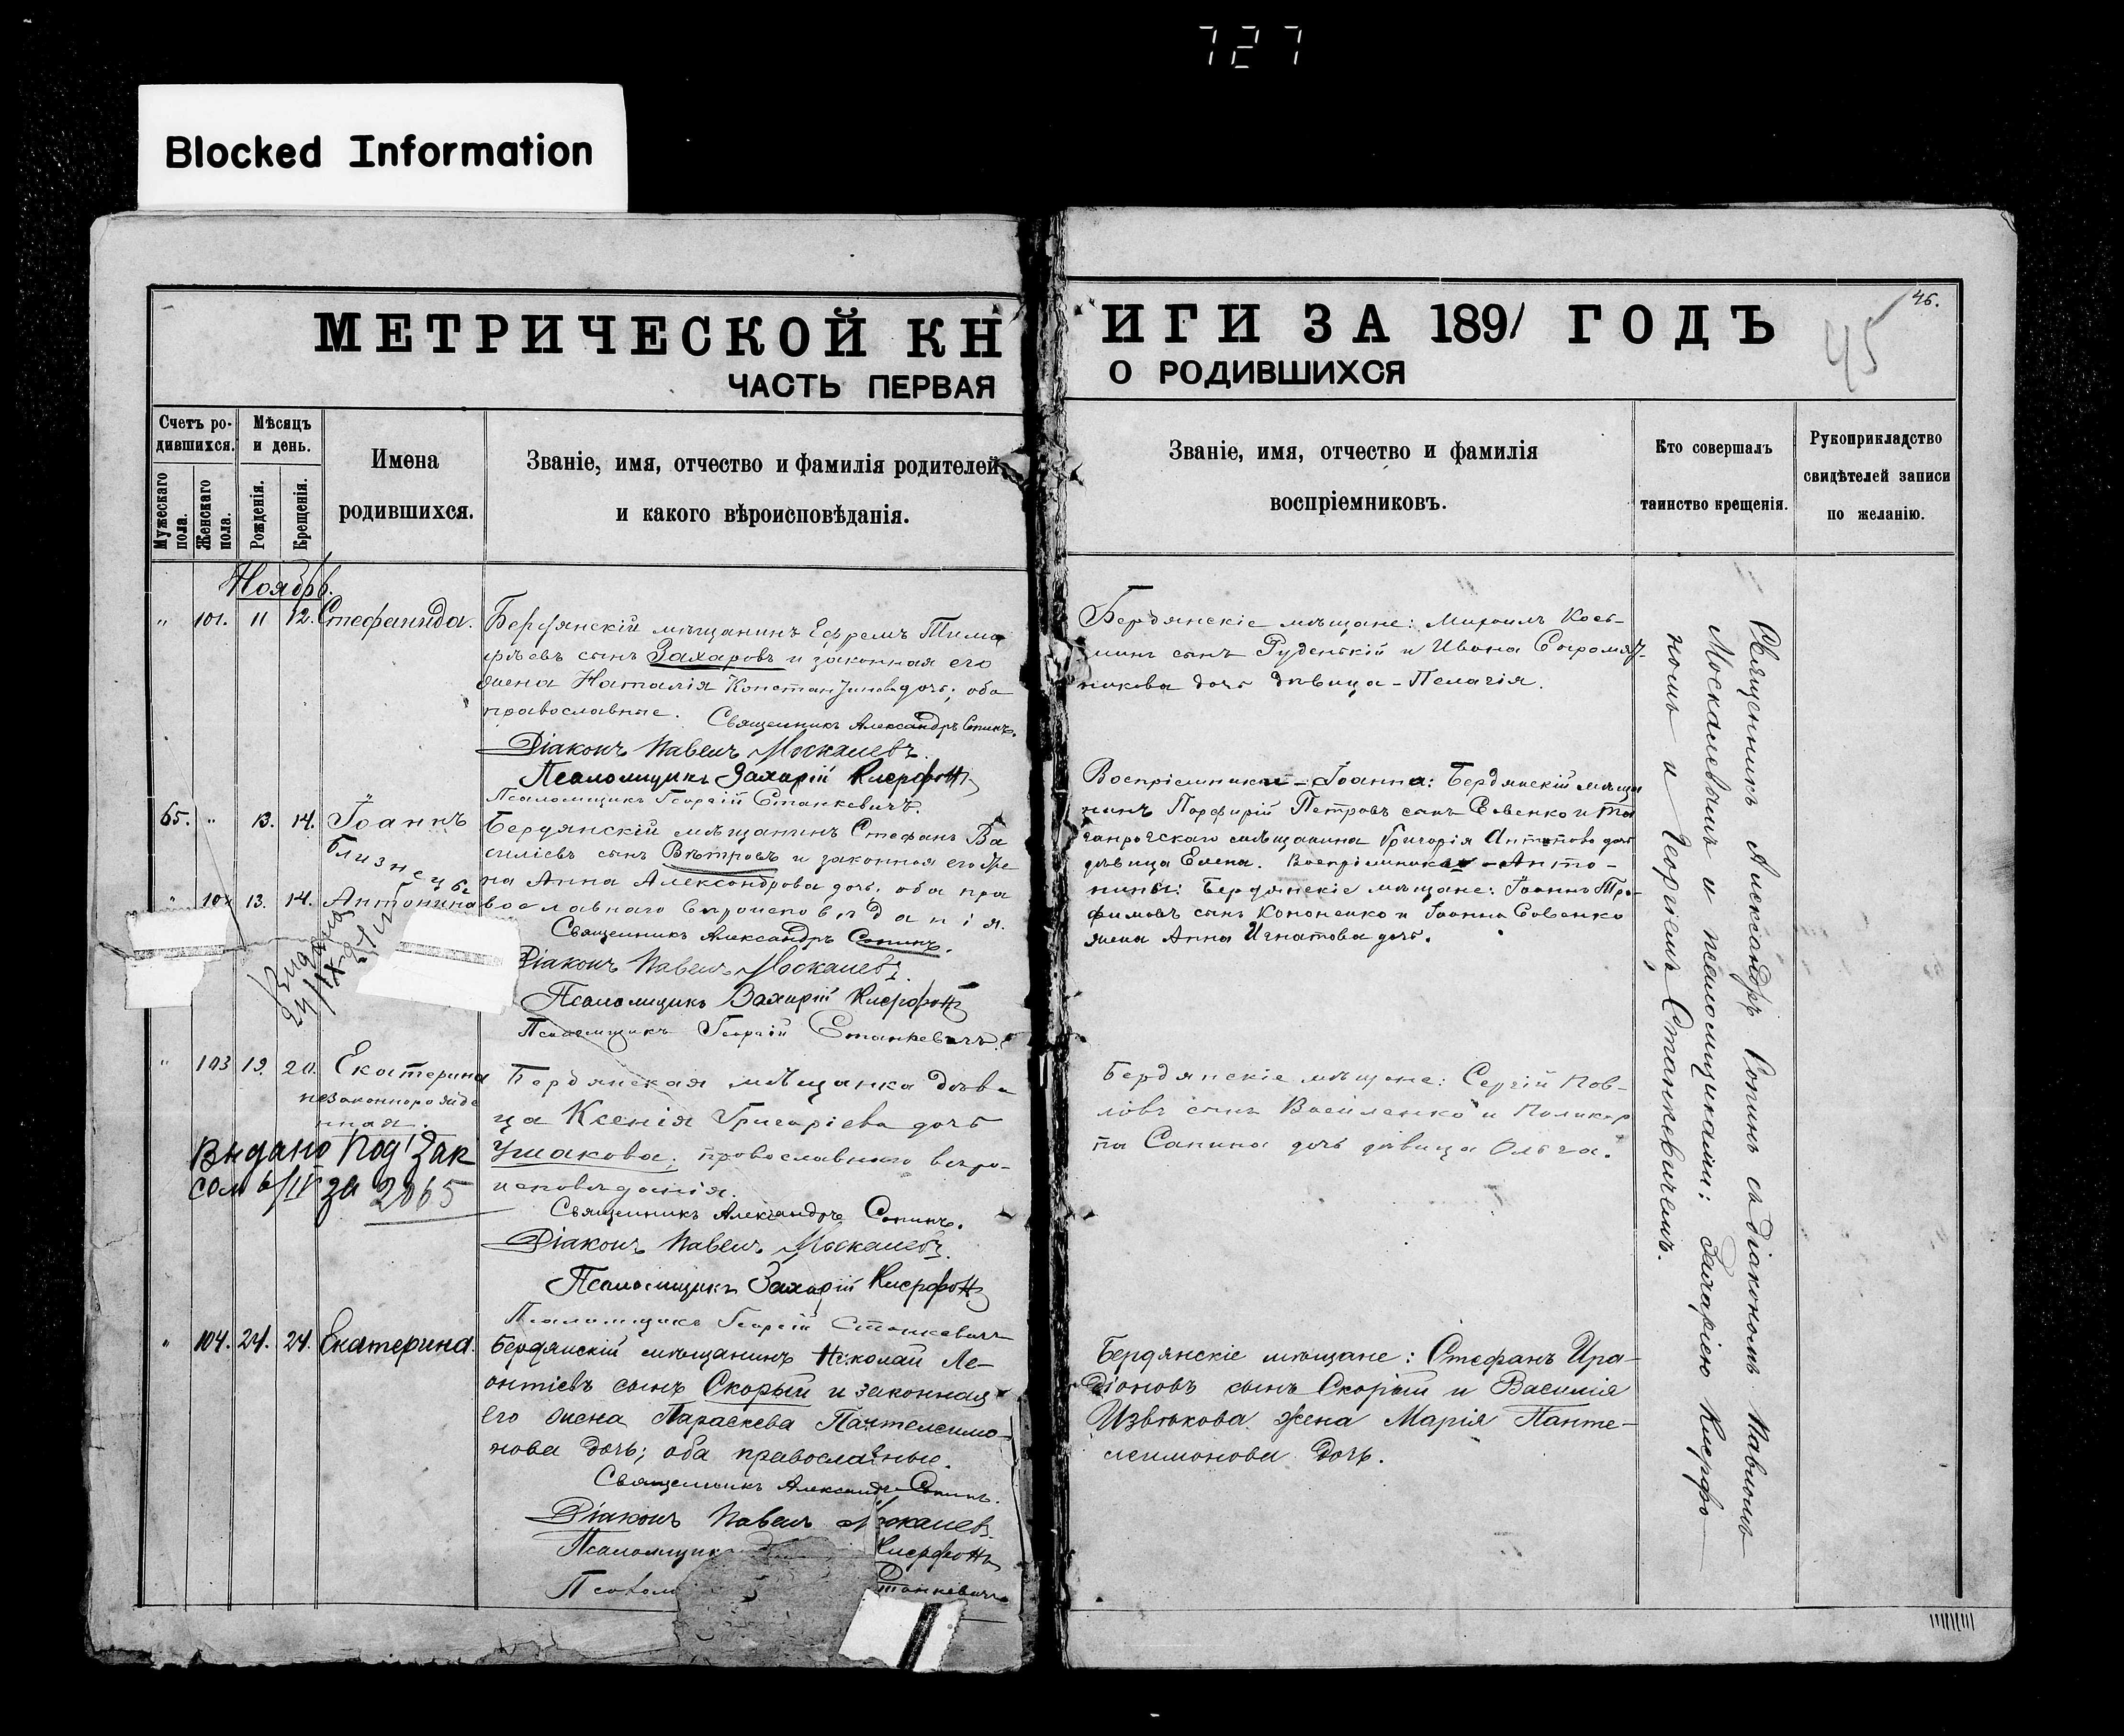 727
Blocked Information
МЕТРИЧЕСКОЙ КНИГИ ЗА 1891 ГОДЪ
46.
45
ЧАСТЬ ПЕРВАЯ О РОДИВШИХСЯ
Счетъ родившихся.
Мужескаго пола.
Женскаго пола.
Мѣсяцъ и день.
Рожденія.
Крещенія.
Имена
родившихся.
Званіе, имя, отчество и фамилія родителей,
и какого вѣроисповѣданія.
Званіе, имя, отчество и фамилія
воспріемниковъ.
Кто совершалъ
таинство крещенія.
Рукоприкладство
свидѣтелей записи
по желанію.
Ноябрь.
" 101. 11 12. Стефанида.
Бердянскій мѣщанинъ Ефремъ Тимо
фѣевъ сынъ Захаровъ и законная его
жена Наталія Константинова дочь; оба
православные.
Священникъ Александръ Сопинъ.
Діаконъ Павелъ Москалевъ.
Псаломщикъ Захарій
Псаломщикъ Георгій Станкевичъ.
Бердянскіе мѣщане: Михаилъ Козь-
минъ сынъ Руденскій и Ивана Сыромят-
никова дочь дѣвица - Пелагія.
65. " 13. 14. Іоаннъ
Близнецы
" 102 13. 14. Антонина
Бердянскій мѣщанинъ Стефанъ Ва
силіевъ сынъ Вѣтровъ и законная его же
на Анна Александрова дочь, оба пра
вославнаго вѣроисповѣданія.
Священникъ Александръ Сопинъ.
Діаконъ Павелъ Москалевъ.
Псаломщикъ Захарій
Псаломщикъ Георгій Станкевичъ.
Воспріемники - Іоанна: Бердянскій мѣща
нинъ Порфирій Петровъ сынъ Совенко и та
ганрогскаго мѣщанина Григорія Антонова дочь
дѣвица Елена. Воспріемники - Анто-
нины: Бердянскіе мѣщане: Іоаннъ Тро-
фимовъ сынъ Кононенко и Іоанна Совенко
жена Анна Игнатова дочь.
" 103 19. 20. Екатерина
незаконнорожде
нная.
Выдано
за 2065
Бердянская мѣщанка дѣви
ца Ксенія Григоріева дочь
Ушакова; православнаго вѣро-
исповѣданія.
Священникъ Александръ Сопинъ.
Діаконъ Павелъ Москалевъ.
Псаломщикъ Захарій
Псаломщикъ Георгій Станкевичъ
Бердянскіе мѣщане: Сергій Пав-
ловъ сынъ Василенко и Поликар
па Сапина дочь дѣвица Ольга.
" 104. 24. 24. Екатерина.
Бердянскій мѣщанинъ Николай Ле-
онтіевъ сынъ Скорый и законная
его жена Параскева Пантелеимо-
нова дочь; оба православные.
Священникъ Александръ Сопинъ.
Діаконъ Павелъ Москалевъ.
Псаломщикъ
Бердянскіе мѣщане: Стефанъ Ира-
діоновъ сынъ Скорый и Василія
Извѣкова жена Марія Панте-
леимонова дочь.
Священникъ Александръ Сопинъ съ діакономъ Павломъ
Москалевымъ и псаломщиками: Захаріею
и Георгіемъ Станкевичемъ.